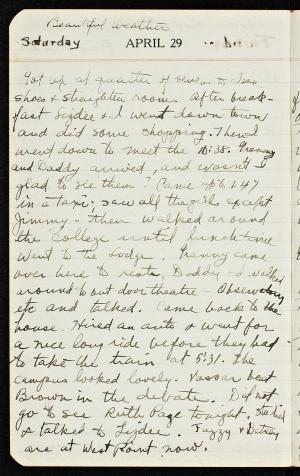 Beautiful weather
Saturday APRIL 29
Got up at quarter of seven to
shoes & straighten room. After break-
fast Lizdee & I went down town
and did some shopping. Then I
went down to meet the 10:35. Granny
and Daddy arrived, and wasn't I
glad to see them! Came up to 147
in a taxi; saw all the girls except
Jimmy - then walked around
the College until lunch time
Went to the Lodge. Granny came
over here to rest, Daddy & I walked
around to out door theatre - Observatory
etc and talked. Came back to the
house. Hired an auto & went for
a nice long ride before they had
to take the train at 5:31. The
campus looked lovely. Vassar beat
Brown in the debate. Did not
go to see Ruth Page tonight. Studied
& talked to Lizdee. Fuzzy &
are at West Point now.